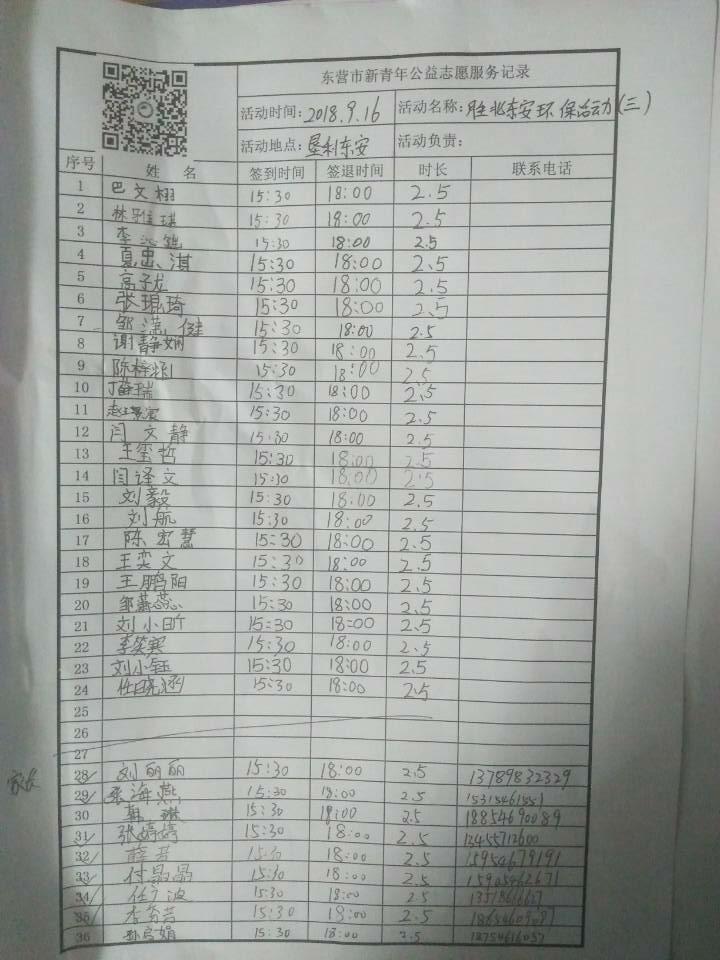 东营市新青年公益志愿服务记录
活动时间: 2018.9.16 活动名称: 胜北东安环保活动(三)
活动地点: 垦利东安 活动负责:
序号 姓 名 签到时间 签退时间 时长 联系电话
1 巴文栩 15:30 18:00 2.5
2 林雅琪 15:30 18:00 2.5
3 李 15:30 18:00 2.5
4 夏忠淇 15:30 18:00 2.5
5 高子龙 15:30 18:00 2.5
6 张琨琦 15:30 18:00 2.5
7 邹潇健 15:30 18:00 2.5
8 谢静娴 15:30 18:00 2.5
9 陈梓 15:30 18:00 2.5
10 丁薛瑞 15:30 18:00 2.5
11 赵 15:30 18:00 2.5
12 闫文静 15:30 18:00 2.5
13 王玺哲 15:30 18:00 2.5
14 闫译文 15:30 18:00 2.5
15 刘毅 15:30 18:00 2.5
16 刘航 15:30 18:00 2.5
17 陈宏慧 15:30 18:00 2.5
18 王奕文 15:30 18:00 2.5
19 王鹏阳 15:30 18:00 2.5
20 邹蕊 15:30 18:00 2.5
21 刘小昕 15:30 18:00 2.5
22 李笑寒 15:30 18:00 2.5
23 刘小钰 15:30 18:00 2.5
24 任晓涵 15:30 18:00 2.5
25
26
27
家长 28 刘丽丽 15:30 18:00 2.5 13789832329
29 张海燕 15:30 18:00 2.5
30 韩琳 15:30 18:00 2.5 18854690089
31 张婷婷 15:30 18:00 2.5 13455712600
32 薛芹 15:30 18:00 2.5 15954679191
33 付晶晶 15:30 18:00 2.5 15905462671
34 任广波 15:30 18:00 2.5
35 李芳芸 15:30 18:00 2.5
36 孙启娟 15:30 18:00 2.5 18754616057